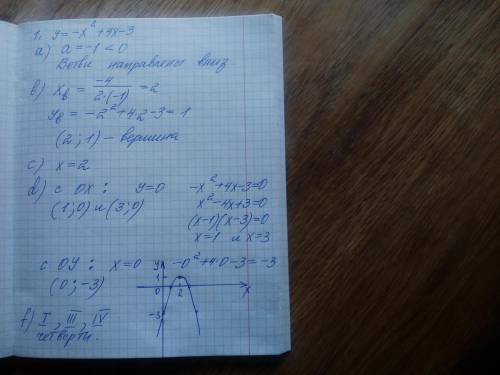 1. y=-x²+4x-3
a) a=-1<0
Ветви направлены вниз
b) xв = -4/2·(-1) = 2
yв = -2²+4·2-3=1
(2; 1) - вершина
c) x=2
d) с OX: y=0 -x²+4x-3=0
(1; 0) и (3; 0) x²-4x+3=0
(x-1)(x-3)=0
x=1 и x=3
с OY: x=0 -0²+4·0-3=-3
(0; -3)
y
1
0 2 x
-3
f) I, III, IV
четверти.